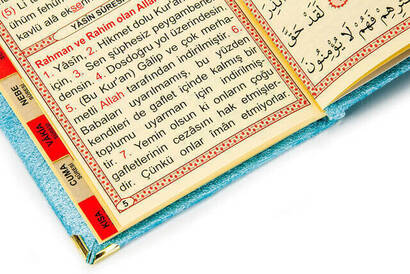 (5) Lî
kavlü alâ ekse
YÂSİN SÛRESİ
Rahman ve Rahim olan Allah
1. Yâsin. 2. Hikmet dolu Kur'an
3. Sen şüphesiz peygamberler
densin. 4. Dosdoğru yol üzerindesin
5. (Bu Kur'an) Gâlip ve çok merha
metli Allah tarafından indirilmiştir. 6.
Babaları uyarılmamış, bu yüzden
kendileri de gaflet içinde kalmış bir
toplumu uyarman için indirilmiş-
tir. 7. Yemin olsun ki onların çoğu
gafletlerinin cezasını hak etmiştir-
dir. Çünkü onlar îmân etmiyorlar.
5
فَهُمْ لَا يُؤْمِنُونَ
NEBE
SÛRESİ
VÂKIA
SÛRESİ
CUMA
SÛRESİ
KISA